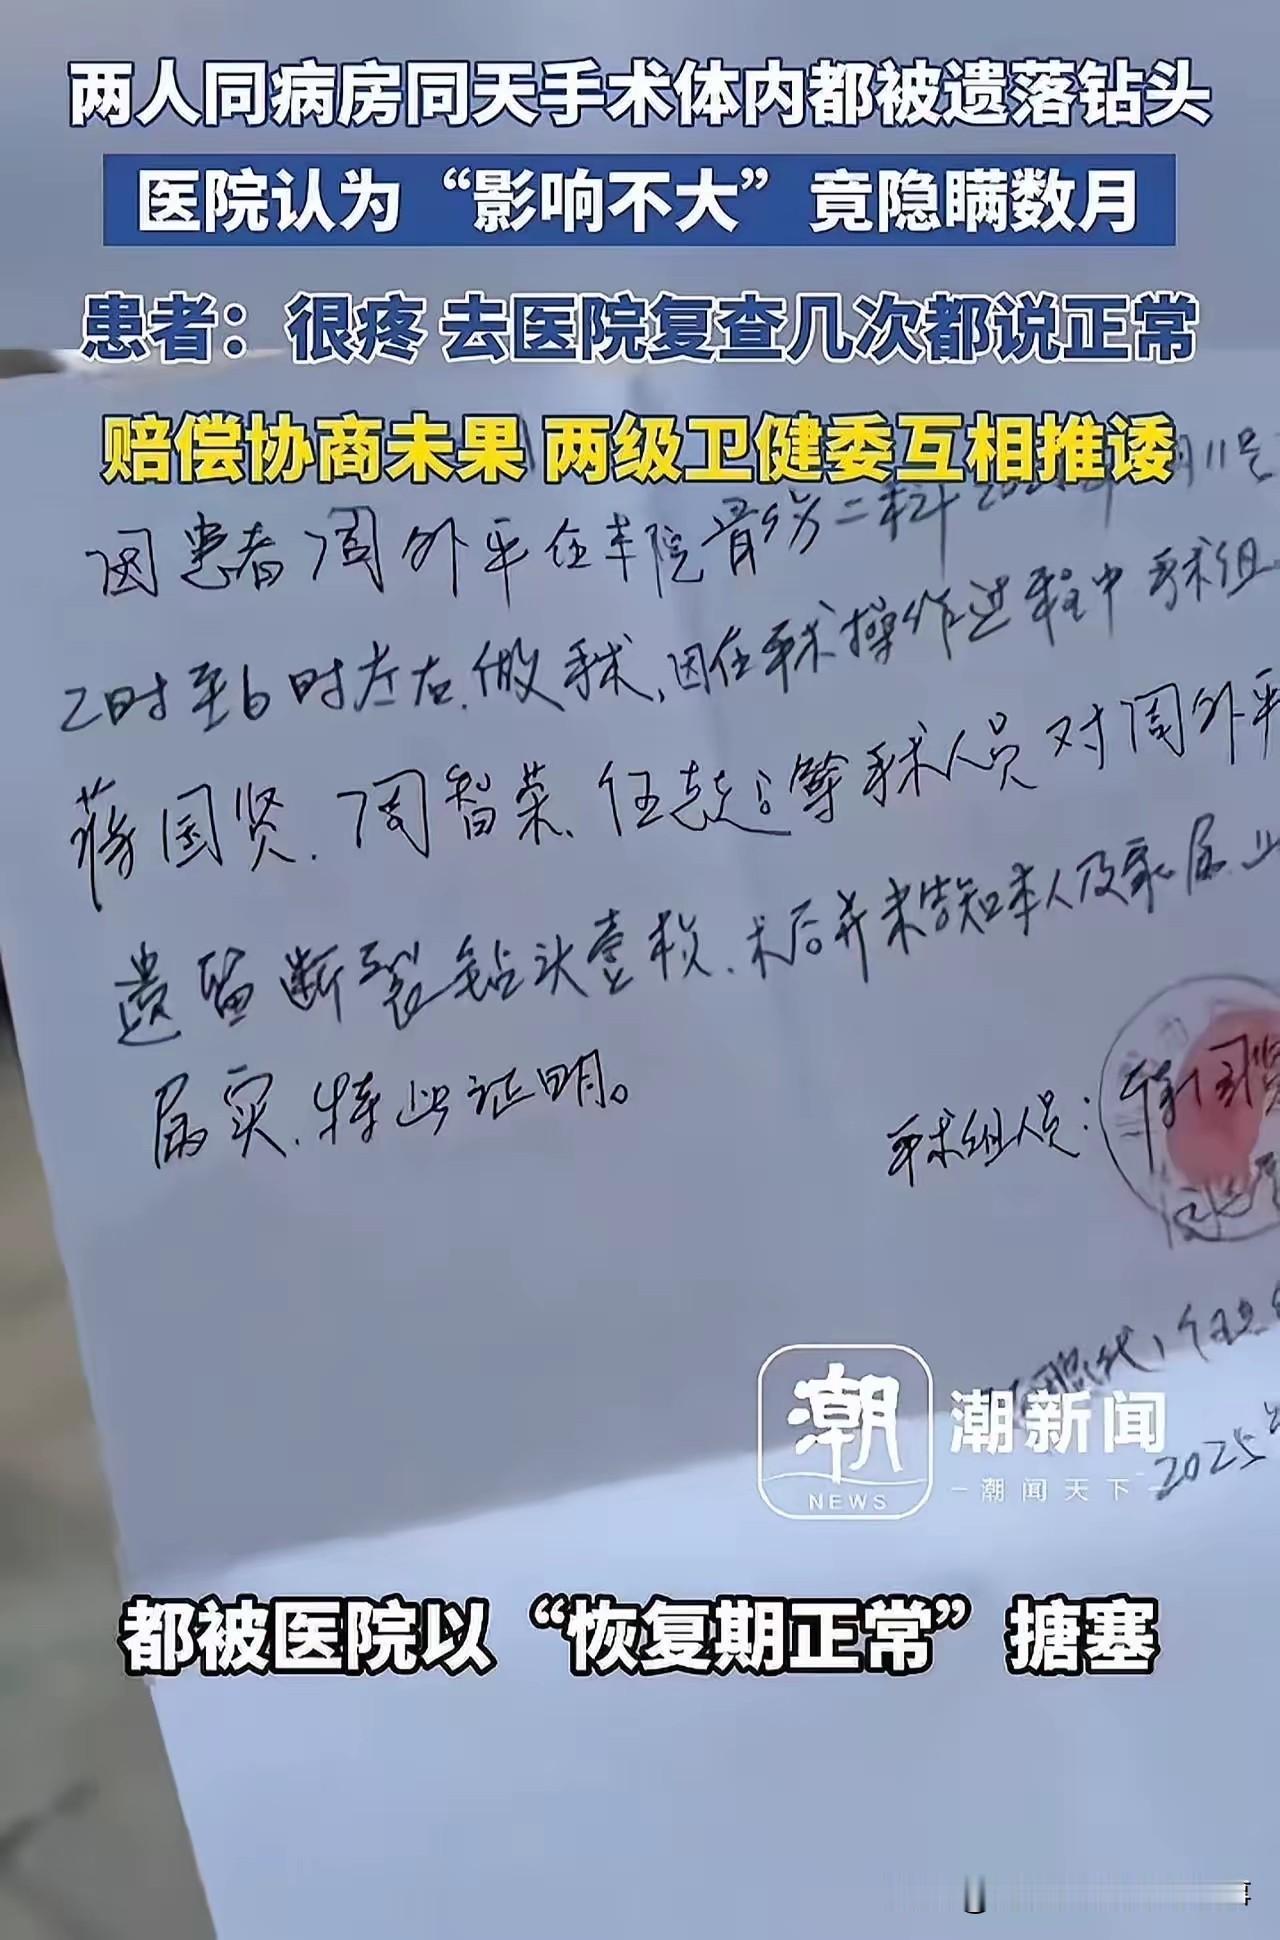 两人同病房同天手术体内都被遗落钻头
医院认为“影响不大”竟隐瞒数月
患者：很疼 去医院复查几次都说正常
赔偿协商未果 两级卫健委互相推诿
因患者周外平在本院骨伤二科 月11号
2时至6时左右做手术，因在手术操作过程中手术组
蒋国贤、周智荣、任 等手术人员对周外平
遗留断裂钻头壹枚，术后并未告知本人及家属，
属实，特此证明。
手术组人员：蒋国贤
潮
NEWS
潮新闻
潮闻天下
2025年
都被医院以“恢复期正常”搪塞